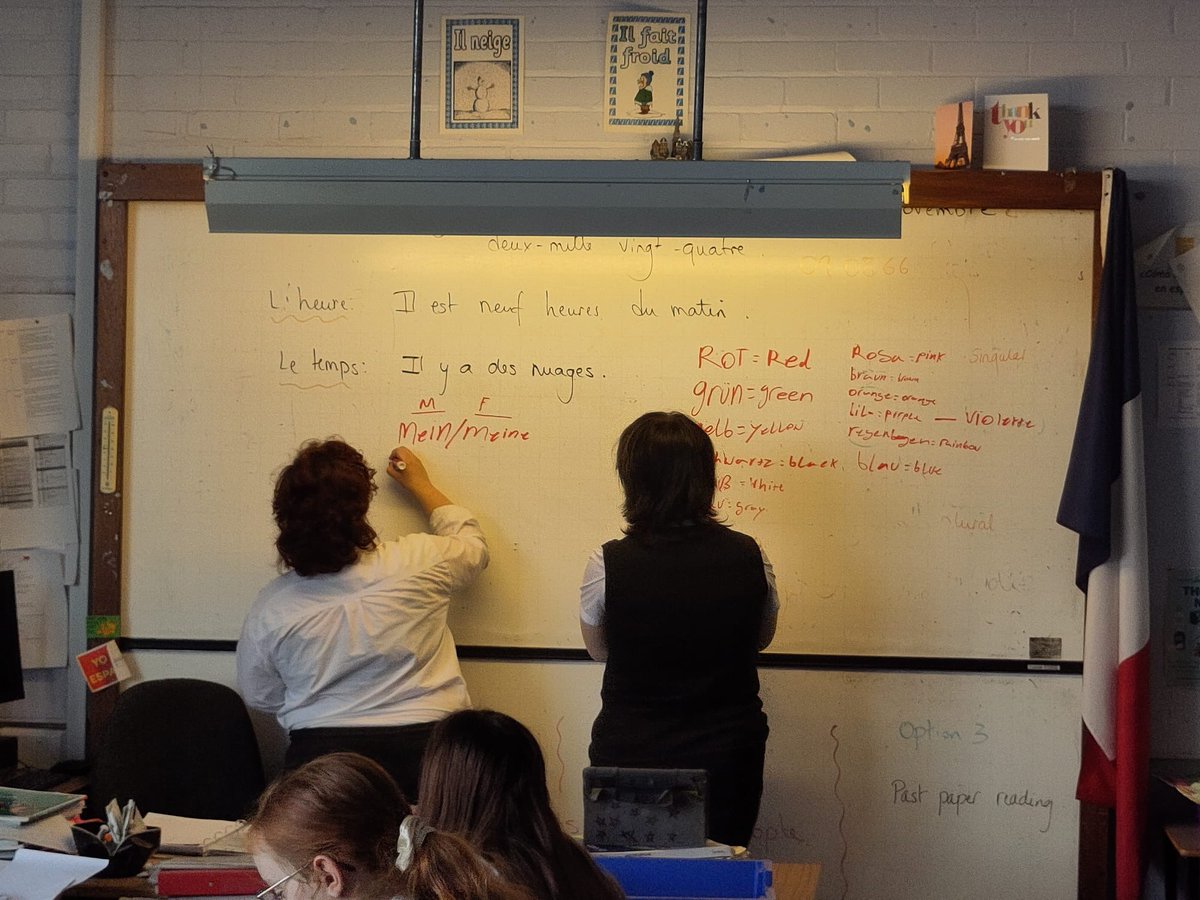 Il neige
Il fait
froid
thank
you
deux-mille vingt-quatre
L'heure: Il est neuf heures du matin.
Le temps: Il y a des nuages.
M F
Mein/Meine
ROT = Red
grün = green
= yellow
= black, blau = blue
= White
= gray
Rosa = pink Singular
braun =
orange = orange
Lila = purple — Violette
regenbogen = rainbow
YO
Option 3
Past paper reading